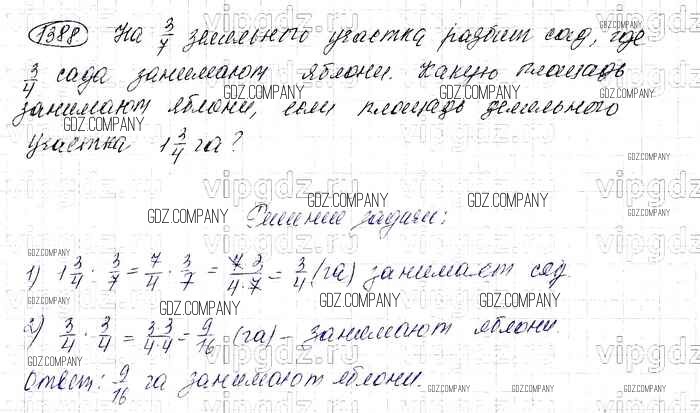 1388 На 3/7 земельного участка разбит сад, где
3/4 сада занимают яблони. Какую площадь
занимают яблони, если площадь земельного
участка 1 3/4 га?
Решение задачи:
1) 1 3/4 · 3/7 = 7/4 · 3/7 = 7·3/4·7 = 3/4 (га) занимает сад
2) 3/4 · 3/4 = 3·3/4·4 = 9/16 (га) – занимают яблони
Ответ: 9/16 га занимают яблони.
GDZ.COMPANY
vipgdz.ru